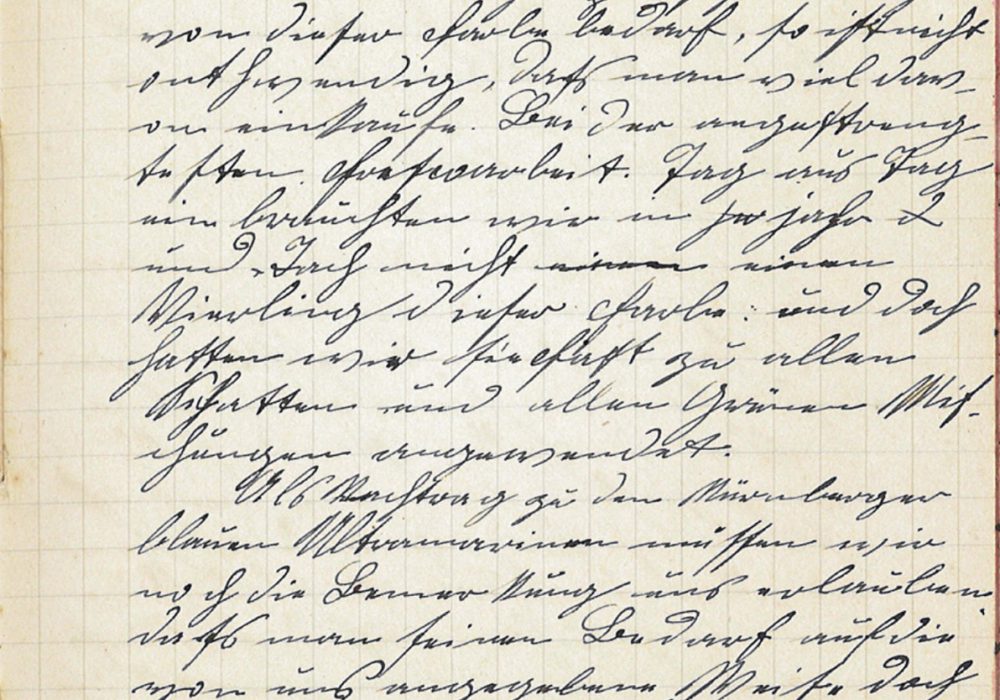 von dieser Farbe bedarf, so ist nicht
nothwendig, daſs man viel dav-
on einkaufe. Bei der angestreng-
testen Frescoarbeit. Tag aus Tag
ein brauchten wir in jahr &
und Tach nicht einen einen
Vierling dieser Farbe: und doch
hatten wir sie fast zu allen
Schatten und allen Grünen Mis-
chungen angewendet.
Als Nachtrag zu den Nürnberger
blauen Ultramarinen müssen wir
noch die Bemerkung uns erlauben
daſs man seinen Bedarf auf die
von uns angegebene Weise doch